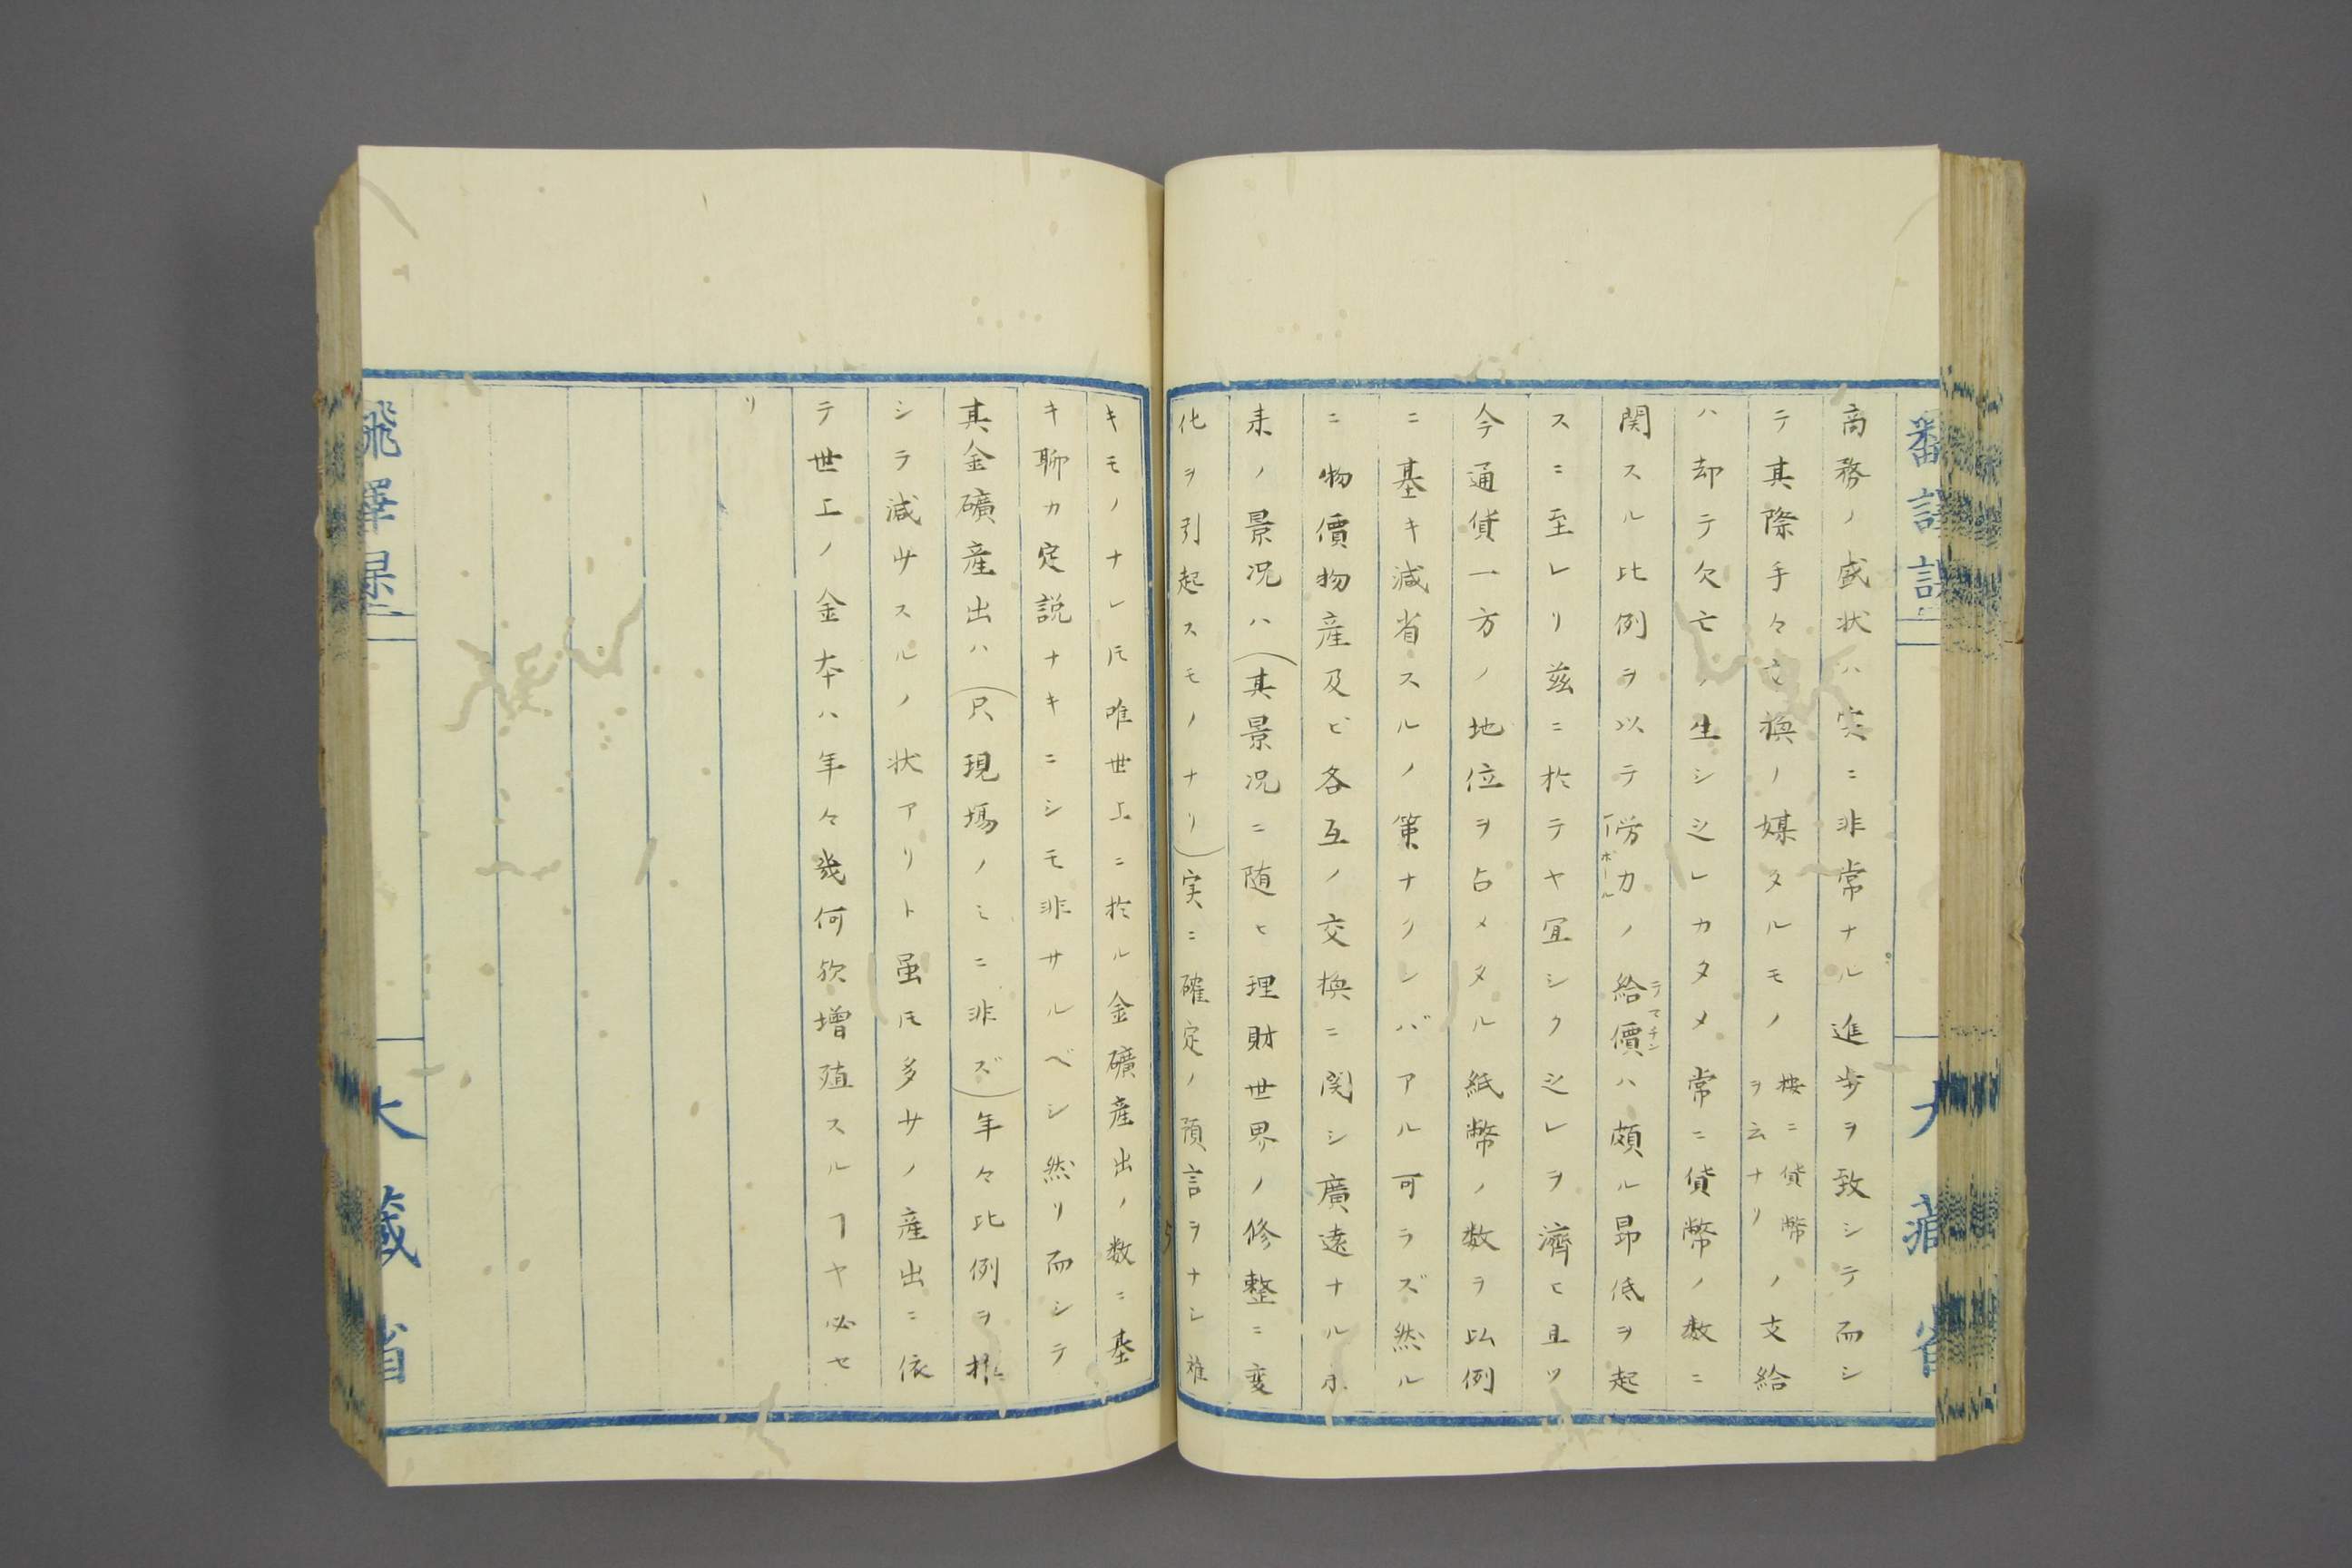 商務ノ盛状ハ実ニ非常ナル進歩ヲ致シテ而シ
テ其際手々交換ノ媒タルモノ 按ニ貨幣ノ支給
ヲ云ナリ
ハ却テ欠亡ノ生シ之レカタメ常ニ貨幣ノ数ニ
関スル比例ヲ以テ労力ノ給價ハ頗ル昂低ヲ起
テマチン
スニ至レリ茲ニ於テヤ宜シク之レヲ濟ヒ且ツ
今通貨一方ノ地位ヲ占メタル紙幣ノ数ヲ比例
ニ基キ減省スルノ策ナクンバアル可ラズ然ル
ニ物價物産及ビ各互ノ交換ニ関シ廣遠ナル
来ノ景況ハ(其景況ニ随ヒ理財世界ノ修整ニ変
化ヲ引起スモノナリ)実ニ確定ノ預言ヲナシ難
キモノナレ𪜈唯世上ニ於ル金礦産出ノ数ニ基
キ聊カ定説ナキニシモ非サルベシ然リ而シテ
其金礦産出ハ(只現場ノミニ非ズ)年々比例ヲ
シラ減サスルノ状アリト虽𪜈多サノ産出ニ依
テ世上ノ金本ハ年々幾何欤増殖スルヿヤ必セ
リ
飜譯課
大藏省
飜譯課
大藏省